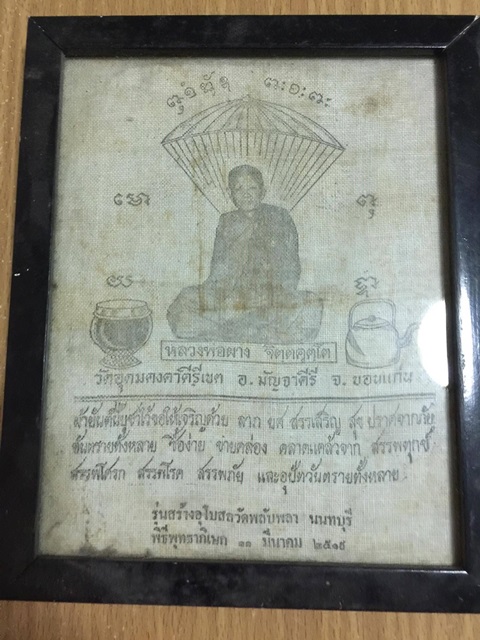 หลวงพ่อผาง จิตตคุตโต
วัดอุดมคงคาคีรีเขต อ. มัญจาคีรี จ. ขอนแก่น
ผ้ายันต์นี้บูชาไว้ขอให้เจริญด้วย ลาภ ยศ สรรเสริญ สุข ปราศจากภัย
อันตรายทั้งหลาย ซื้อง่าย ขายคล่อง คลาดแคล้วจาก สรรพทุกข์
สรรพโศรก สรรพโรค สรรพภัย และอุปัตวันตรายทั้งหลาย
รุ่นสร้างอุโบสถวัดพลับพลา นนทบุรี
พิธีพุทธาภิเษก ๑๑ มีนาคม ๒๕๑๙